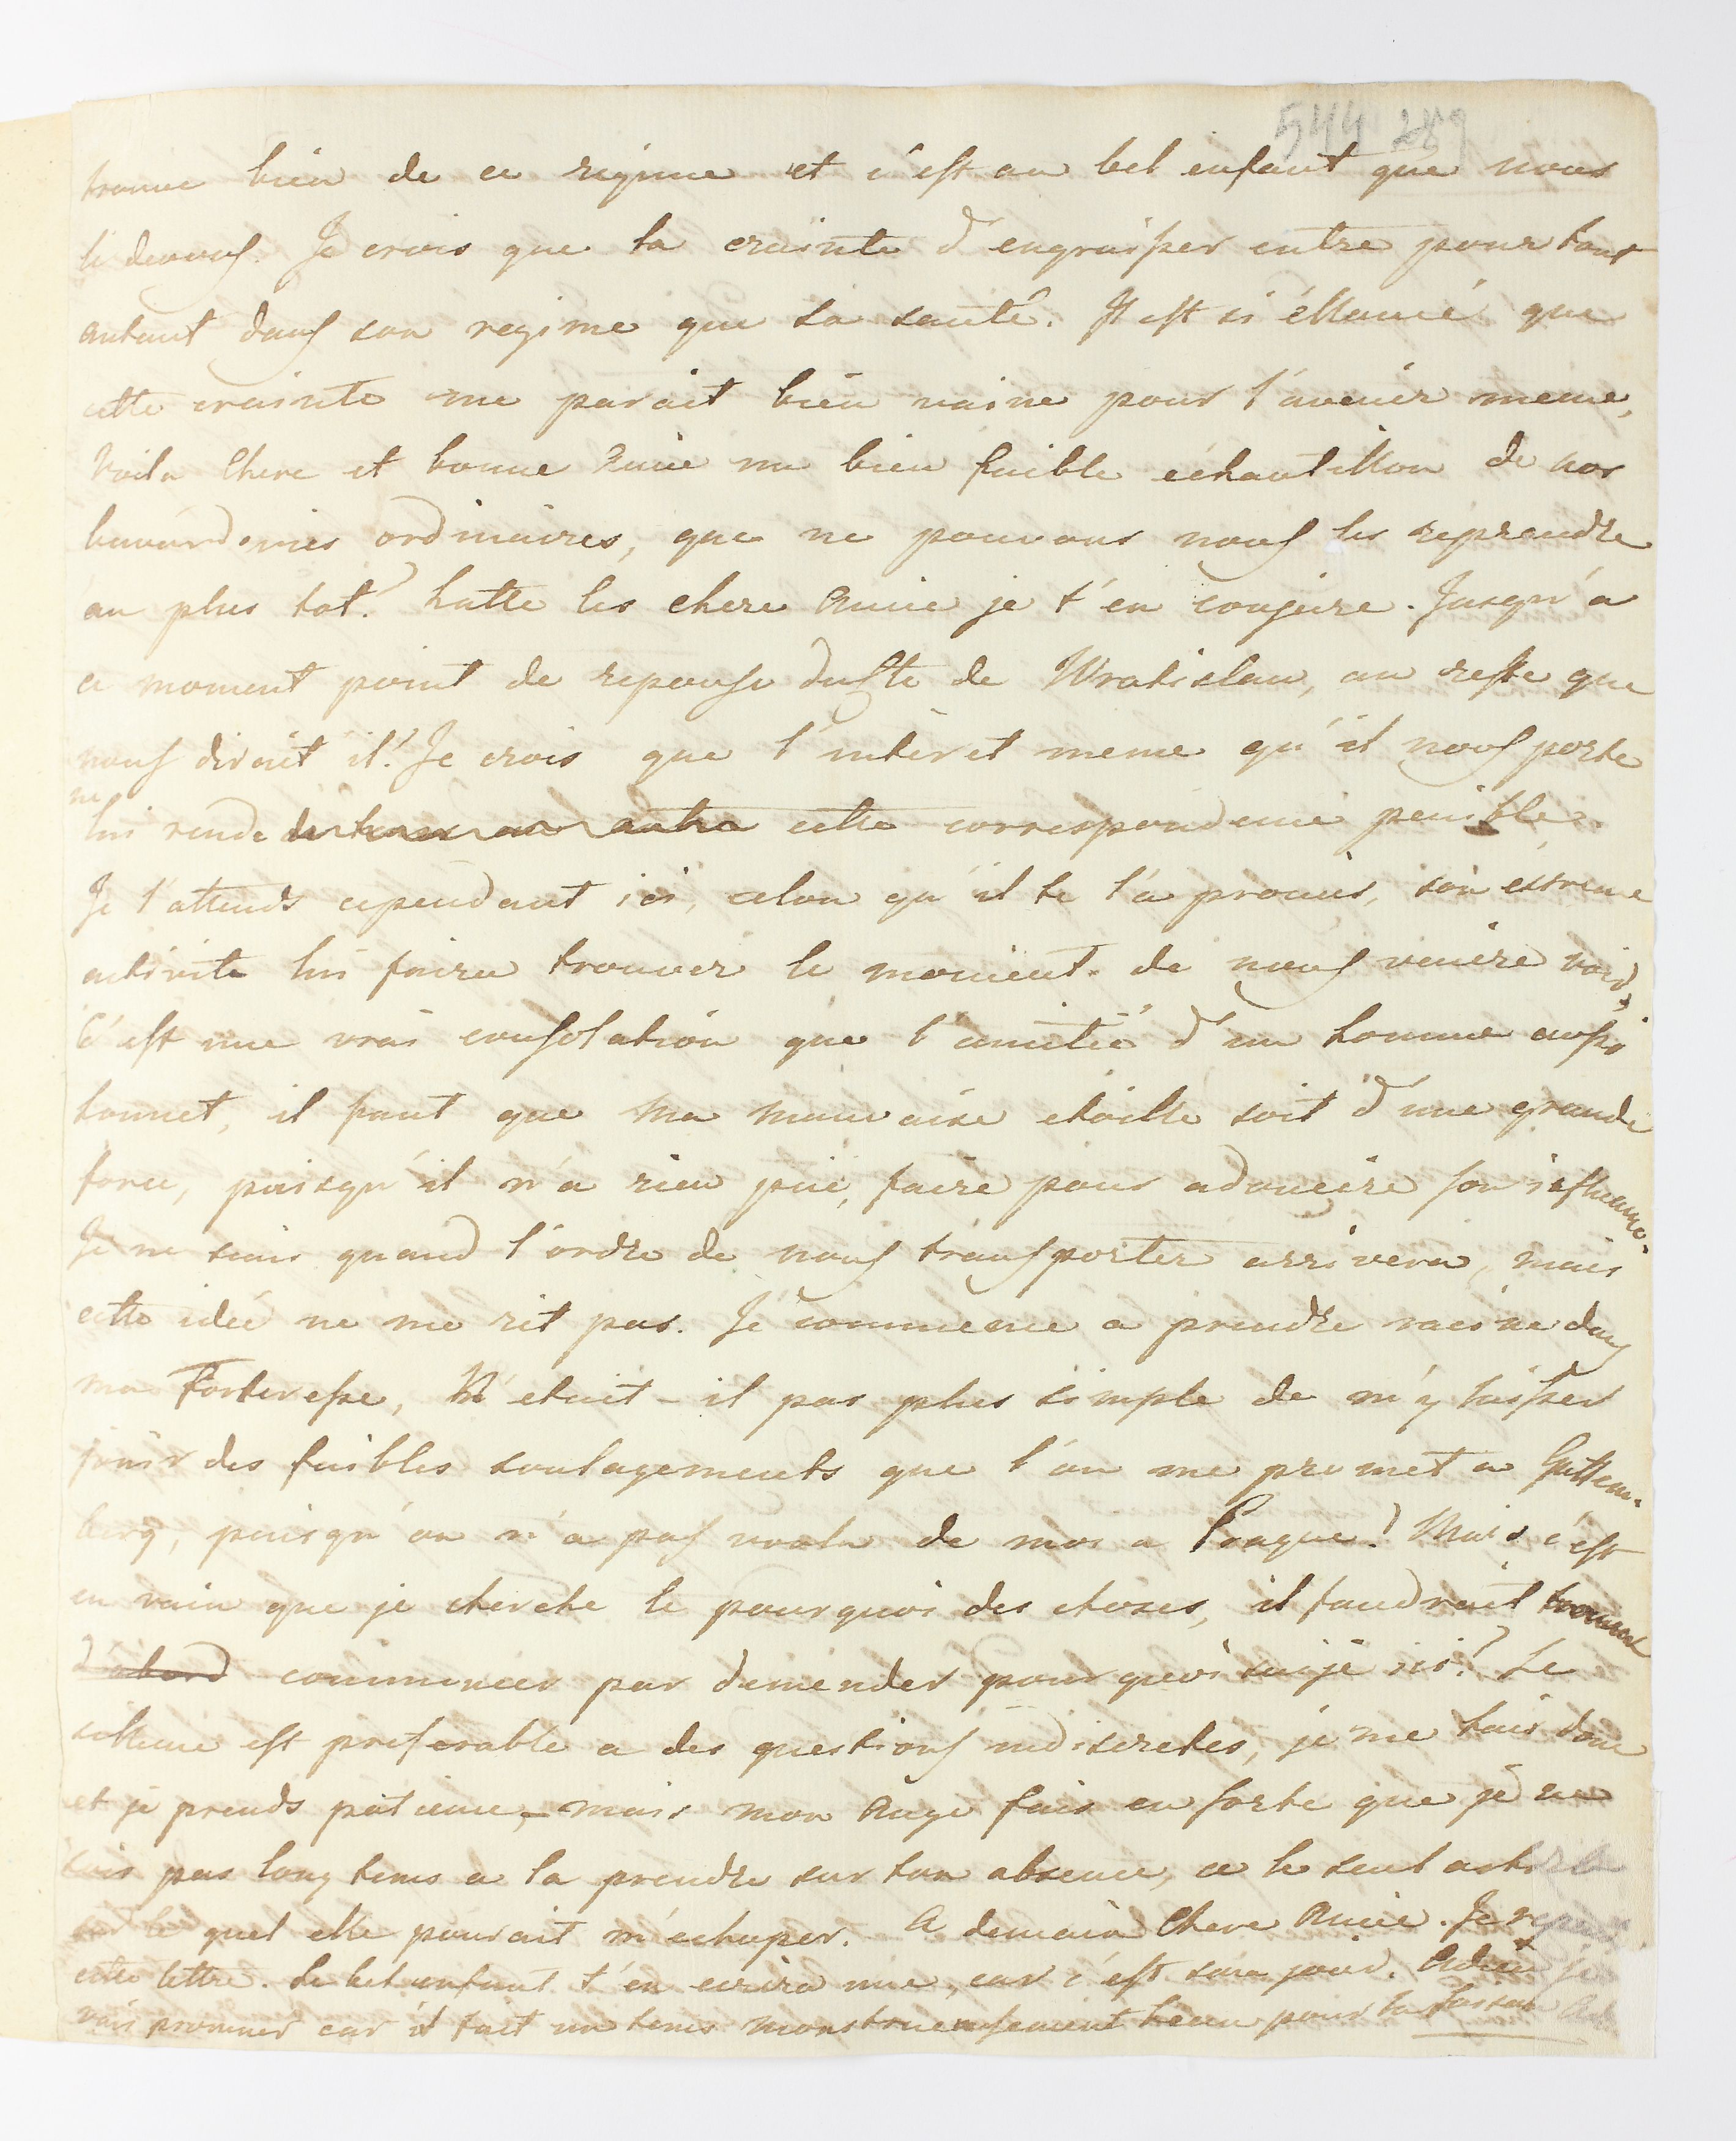 544 289
trouve bien de ce regime et c'est au bel enfant que nous
le devons. Je crois que la crainte d'engraisser entre pour tout
autant dans son regime que sa santé. Il est si éllancé que
cette crainte me parait bien vaine pour l'avenir meme,
Voila Chere et bonne Amie un bien faible échantillon de nos
bavarderies ordinaires, que ne pouvons nous les reprendre
au plus tot! hatte les chere Amie je t'en conjure. Jusqu'a
ce moment point de reponse de Wratislau, au reste que
nous dirait il! Je crois que l'interet meme qu'il nous porte
lui rende cette correspondence penible.
Je l'attends cependant ici, selon qu'il te l'a promis, son extreme
activite lui faira trouver le moment de nous venire voir,
C'est une vrai consolation que l'amitié d'un homme aussi
honnet, il faut que ma mauvaise etoille soit d'une grande
force, puisqu'il n'a rien pué, faire pour adoucire son influence.
Je ne sais quand l'ordre de nous transporter arrivera, mais
cette idée ne me rit pas. Je commence a prendre racine dans
ma Forteresse, N'etait-il pas plus simple de m'y laisser
jouir des faibles soulagements que l'on me promet a Guttem-
berg, puisqu'on n'a pas voulu de moi a Prague! Mais c'est
en vain que je cherche le pourquoi des choses, il faudrait
d'abord commencer par demender pourquoi suije ici? Le
sillence est preferable a des questions indiscretes, je me tais donc
et je prends patience, - mais mon Ange fais en sorte que je ne
sois pas long tems a la prendre sur ton absence, ce le seul
sur le quel elle pourait m'echaper. A demain Chere Amie. Je
cette lettre. Le bel enfant t'en ecrira une, car c'est son jour. Adieu je
vais promner car il fait un tems monstrueusement beau pour la